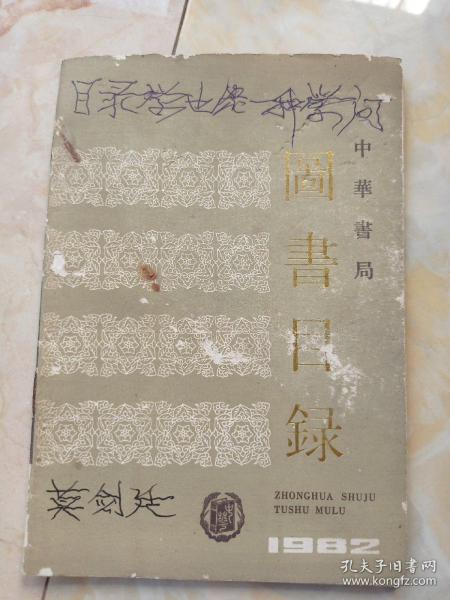 目录学也是一种学问
中華書局
圖書目録
蔡剑廷
ZHONGHUA SHUJU
TUSHU MULU
1982
孔夫子旧书网
www.kongfz.com